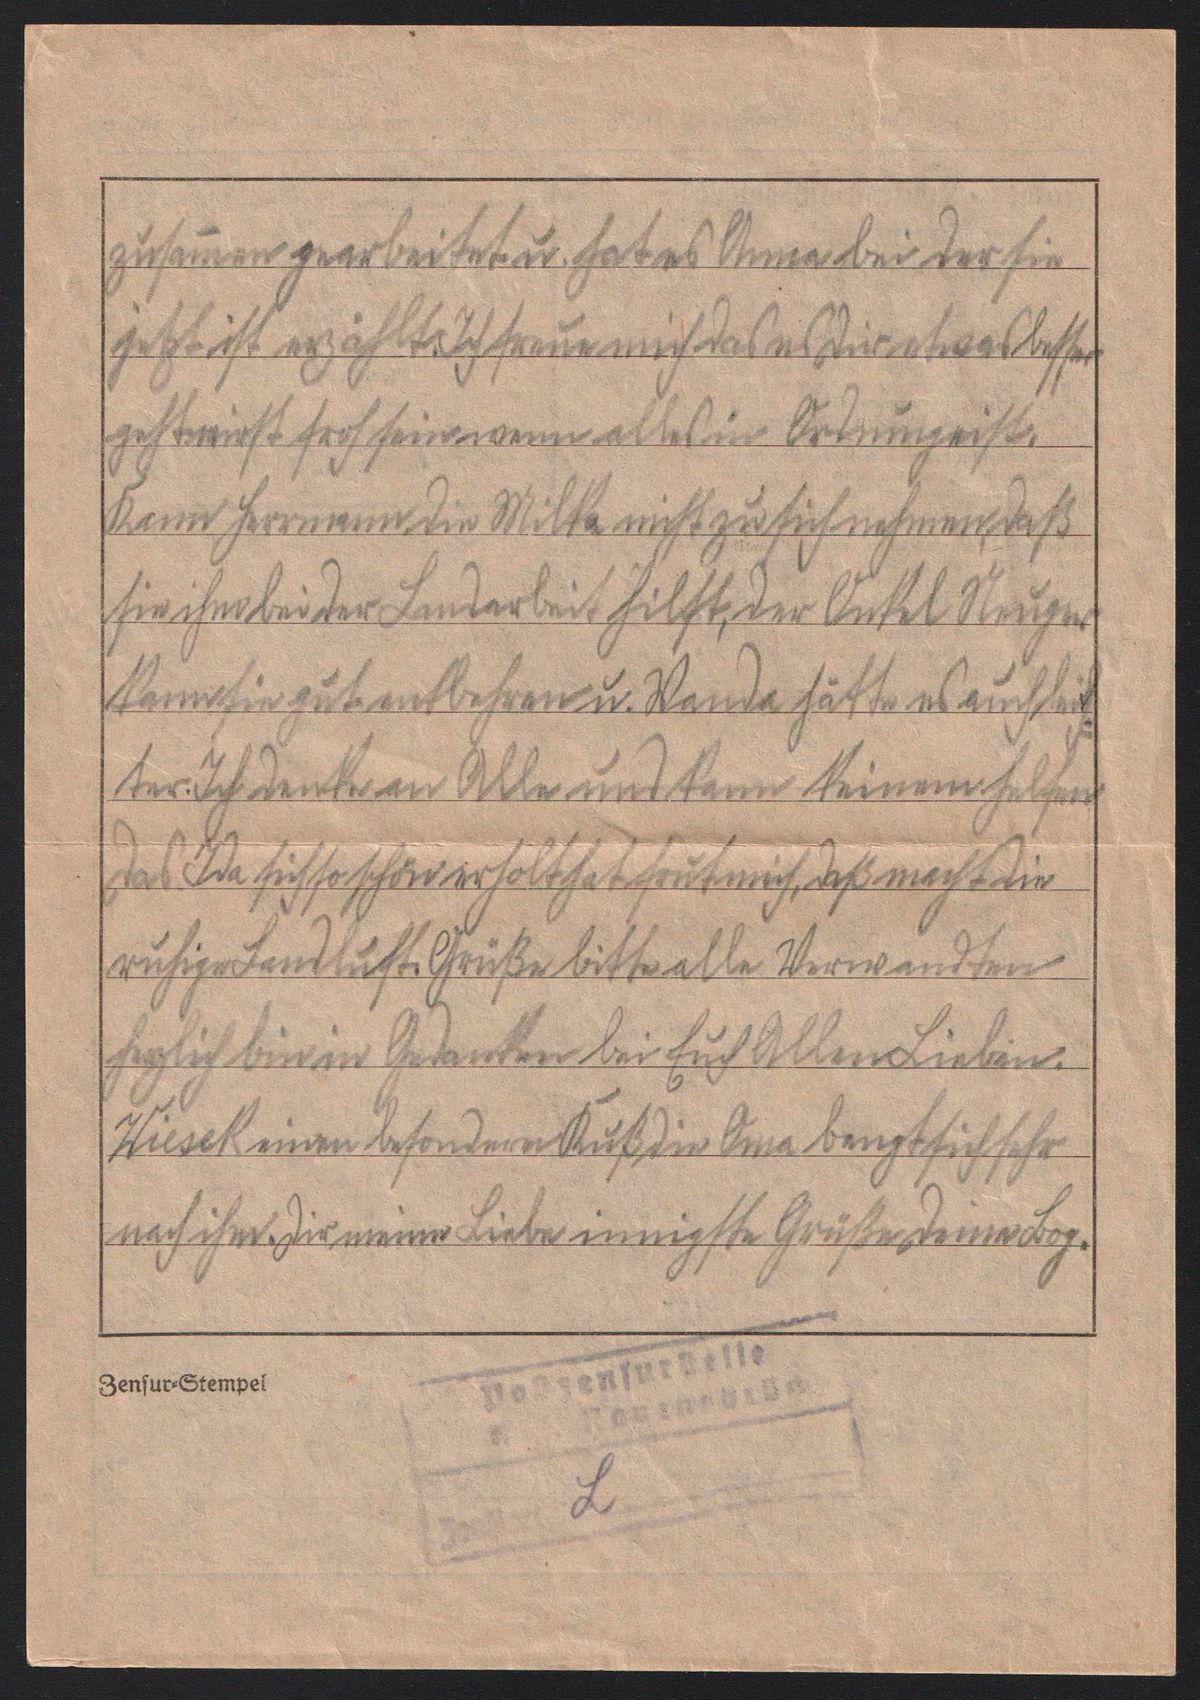 zusam̄en gearbeitet u. hat es Anna bei der sie
jetzt ist erzählt. Ich freue mich das es Dir etwas besser
geht wirst froh sein wenn alles in Ordnung ist.
Kann Herrmann die Milka nicht zu sich nehmen, daß
sie ihm bei der Landarbeit hilft, der Onkel
kann sie gut entbehren u. Wanda hätte es auch leich=
ter. Ich denke an Alle und kann keinem helfen
das Ida sich so schön erholt hat freut mich, daß macht die
ruhige Landluft. Grüße bitte alle Verwandten
herzlich bin in Gedanken bei Euch Allen Lieben.
Wiesek einen besondern Kuß, die Oma bangt sich sehr
nach ihm. Dir meine Liebe innigste Grüße Deine Bog.
Zensur-Stempel
Postzensurstelle
Ravensbrück
L